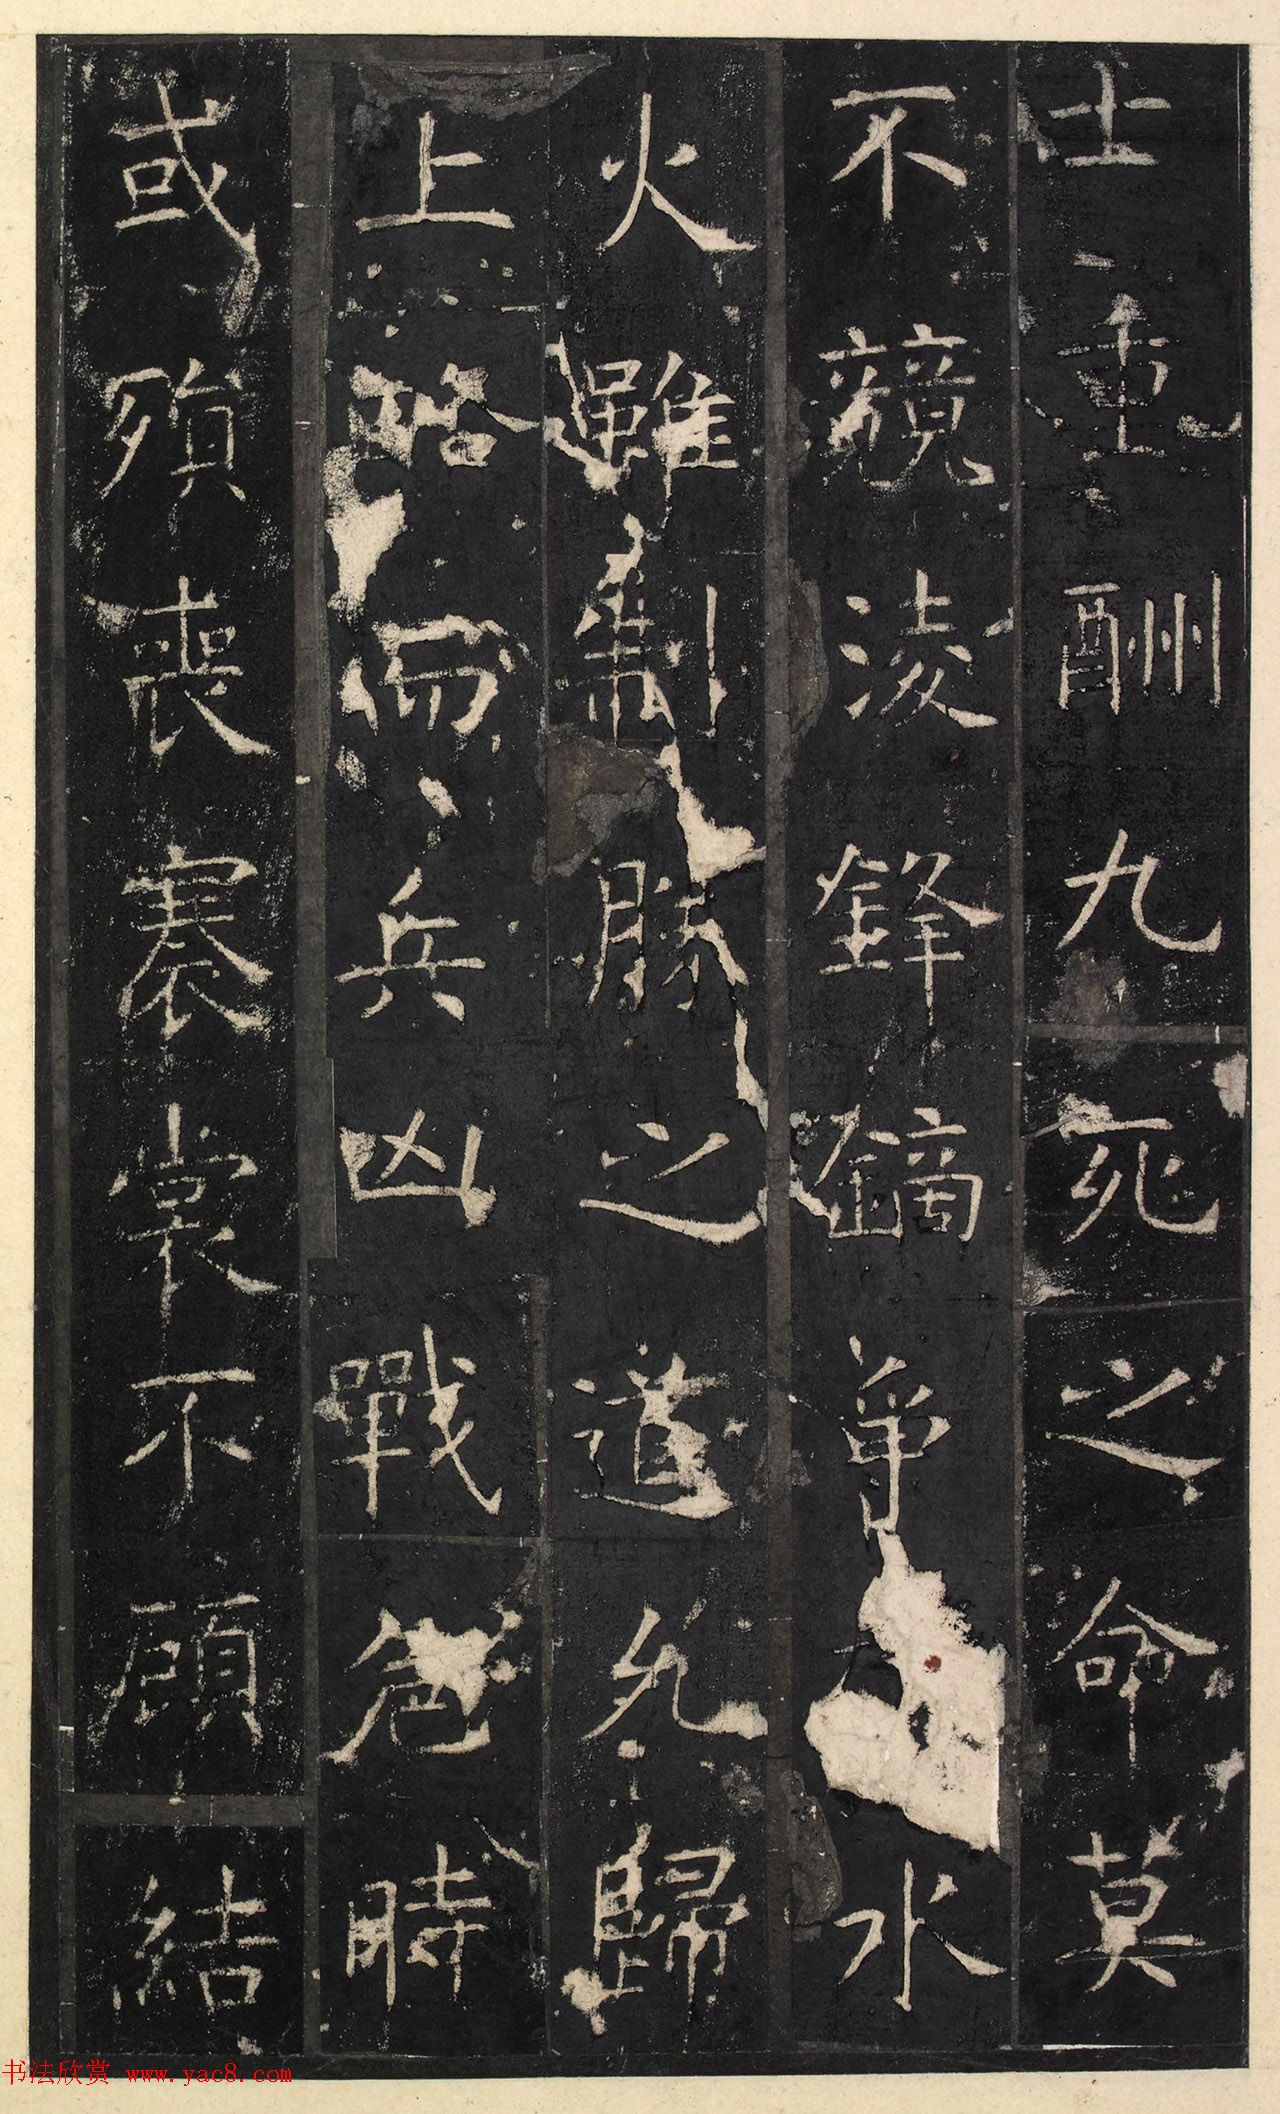 士重酬九死之命莫
不競淩鋒鏑爭水
火雖制勝之道允歸
上略而兵凶戰危時
或殞喪褰裳不顧結
书法欣赏 www.yac8.com